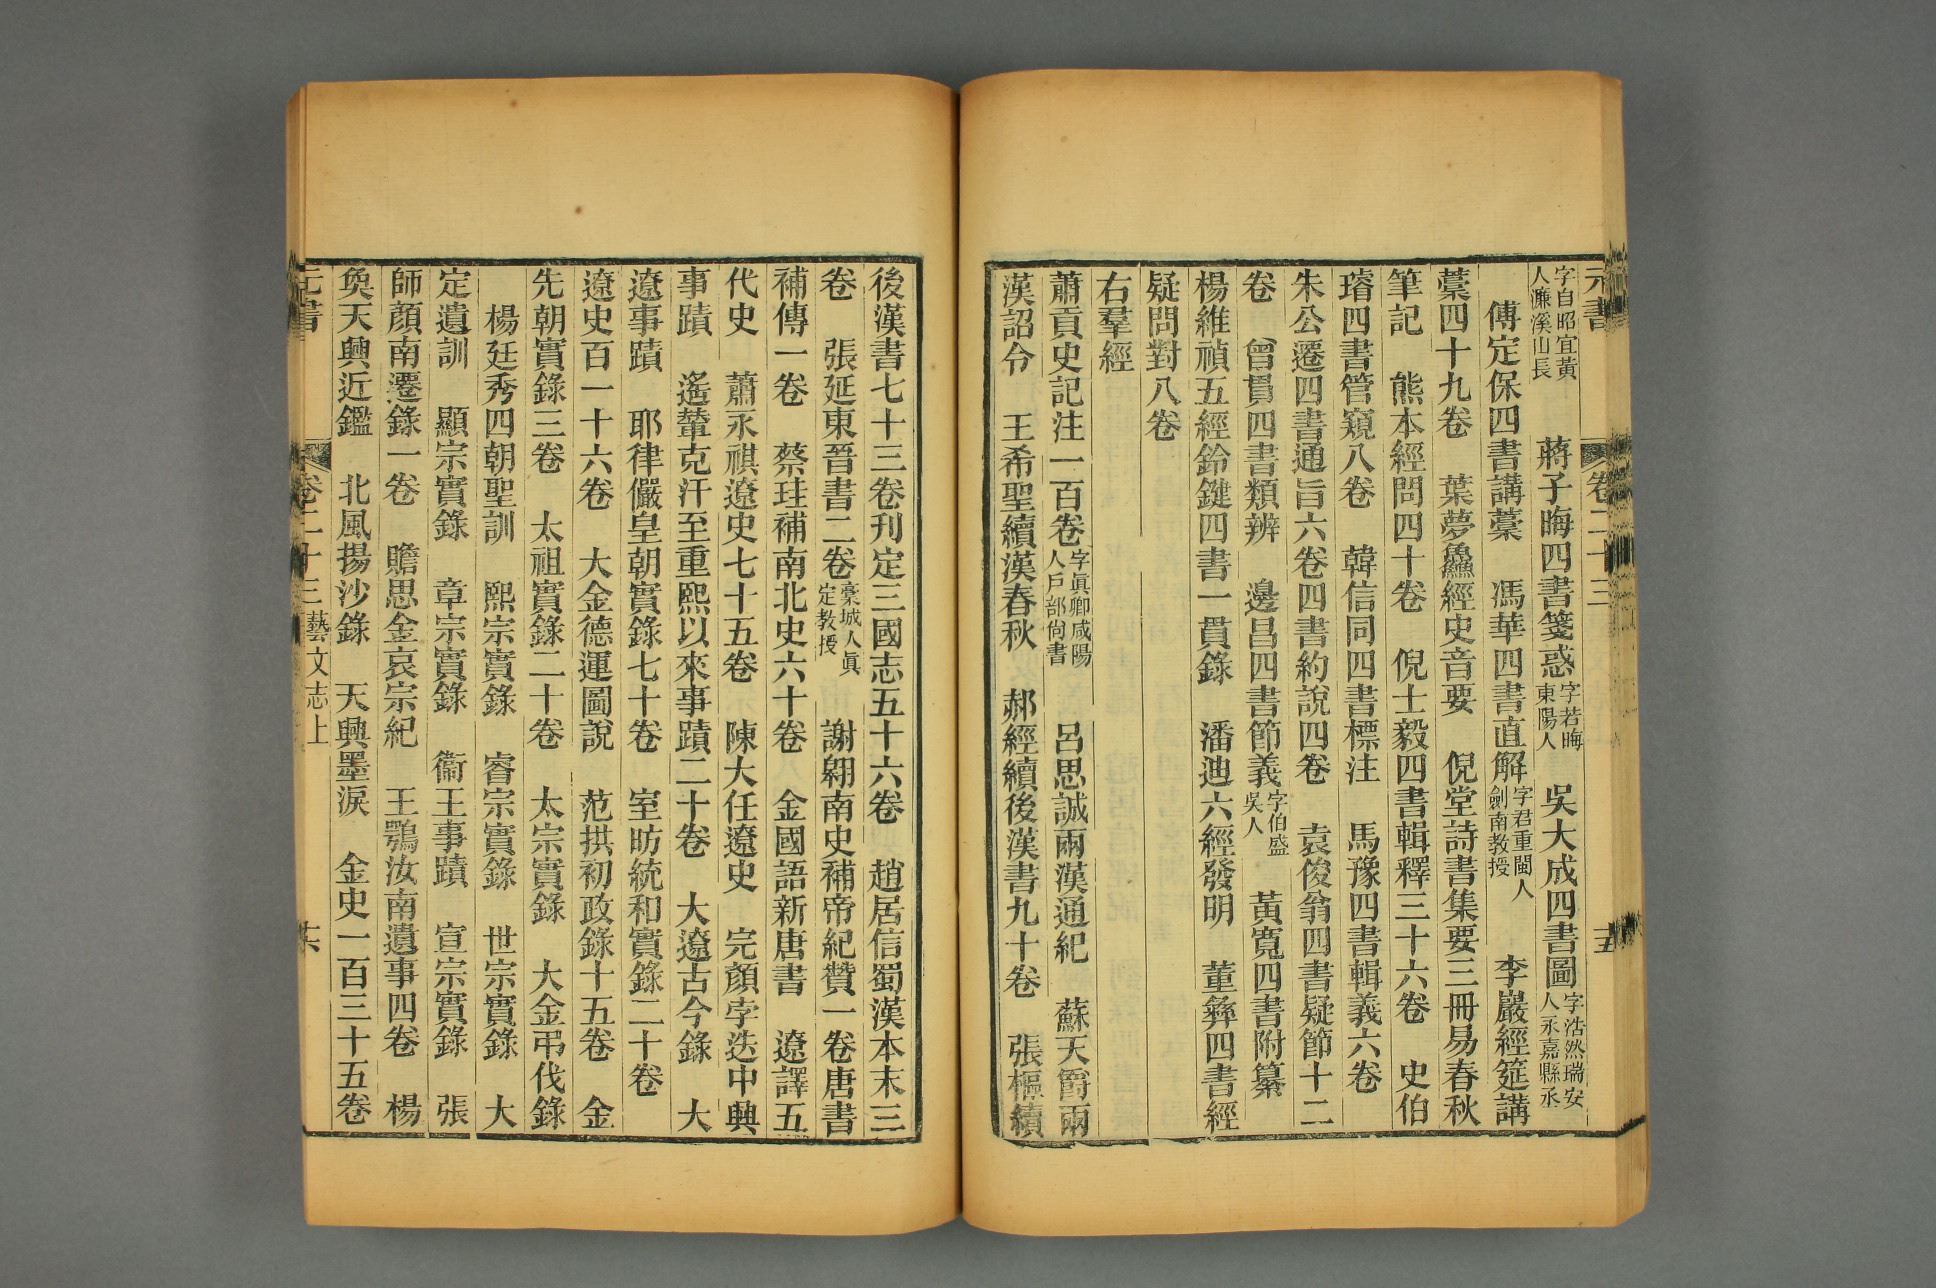 元書 卷二十三 十五
字自昭宜黃人濂溪山長 蔣子晦四書箋惑字若晦東陽人 吳大成四書圖字浩然瑞安人永嘉縣丞
傅定保四書講藁 馮華四書直解字君重閩人劍南教授 李巖經筵講
藁四十九卷 葉夢鱻經史音要 倪堂詩書集要三冊易春秋
筆記 熊本經問四十卷 倪士毅四書輯釋三十六卷 史伯
璿四書管窺八卷 韓信同四書標注 馬豫四書輯義六卷
朱公遷四書通旨六卷四書約說四卷 袁俊翁四書疑節十二
卷 曾貫四書類辨 邊昌四書節義字伯盛吳人 黃寬四書附纂
楊維禎五經鈐鍵四書一貫錄 潘迪六經發明 董彝四書經
疑問對八卷
右羣經
蕭貢史記注一百卷字眞卿咸陽人戶部尙書 呂思誠兩漢通紀 蘇天爵兩
漢詔令 王希聖續漢春秋 郝經續後漢書九十卷 張樞續
後漢書七十三卷刊定三國志五十六卷 趙居信蜀漢本末三
卷 張延東晉書二卷藁城人眞定教授 謝翱南史補帝紀贊一卷唐書
補傳一卷 蔡珪補南北史六十卷 金國語新唐書 遼譯五
代史 蕭永祺遼史七十五卷 陳大任遼史 完顏孛迭中興
事蹟 遙輦克汗至重熙以來事蹟二十卷 大遼古今錄 大
遼事蹟 耶律儼皇朝實錄七十卷 室昉統和實錄二十卷
遼史百一十六卷 大金德運圖說 范拱初政錄十五卷 金
先朝實錄三卷 太祖實錄二十卷 太宗實錄 大金弔伐錄
楊廷秀四朝聖訓 熙宗實錄 睿宗實錄 世宗實錄 大
定遺訓 顯宗實錄 章宗實錄 衞王事蹟 宣宗實錄 張
師顏南遷錄一卷 贍思金哀宗紀 王鶚汝南遺事四卷 楊
奐天興近鑑 北風揚沙錄 天興墨淚 金史一百三十五卷
元書 卷二十三 藝文志上 十六